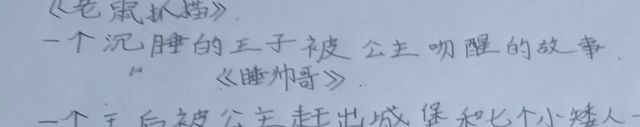 《老鼠抓猫》
一个沉睡的王子被公主吻醒的故事.
《睡帅哥》
一个王后被公主赶出城堡和七个小矮人